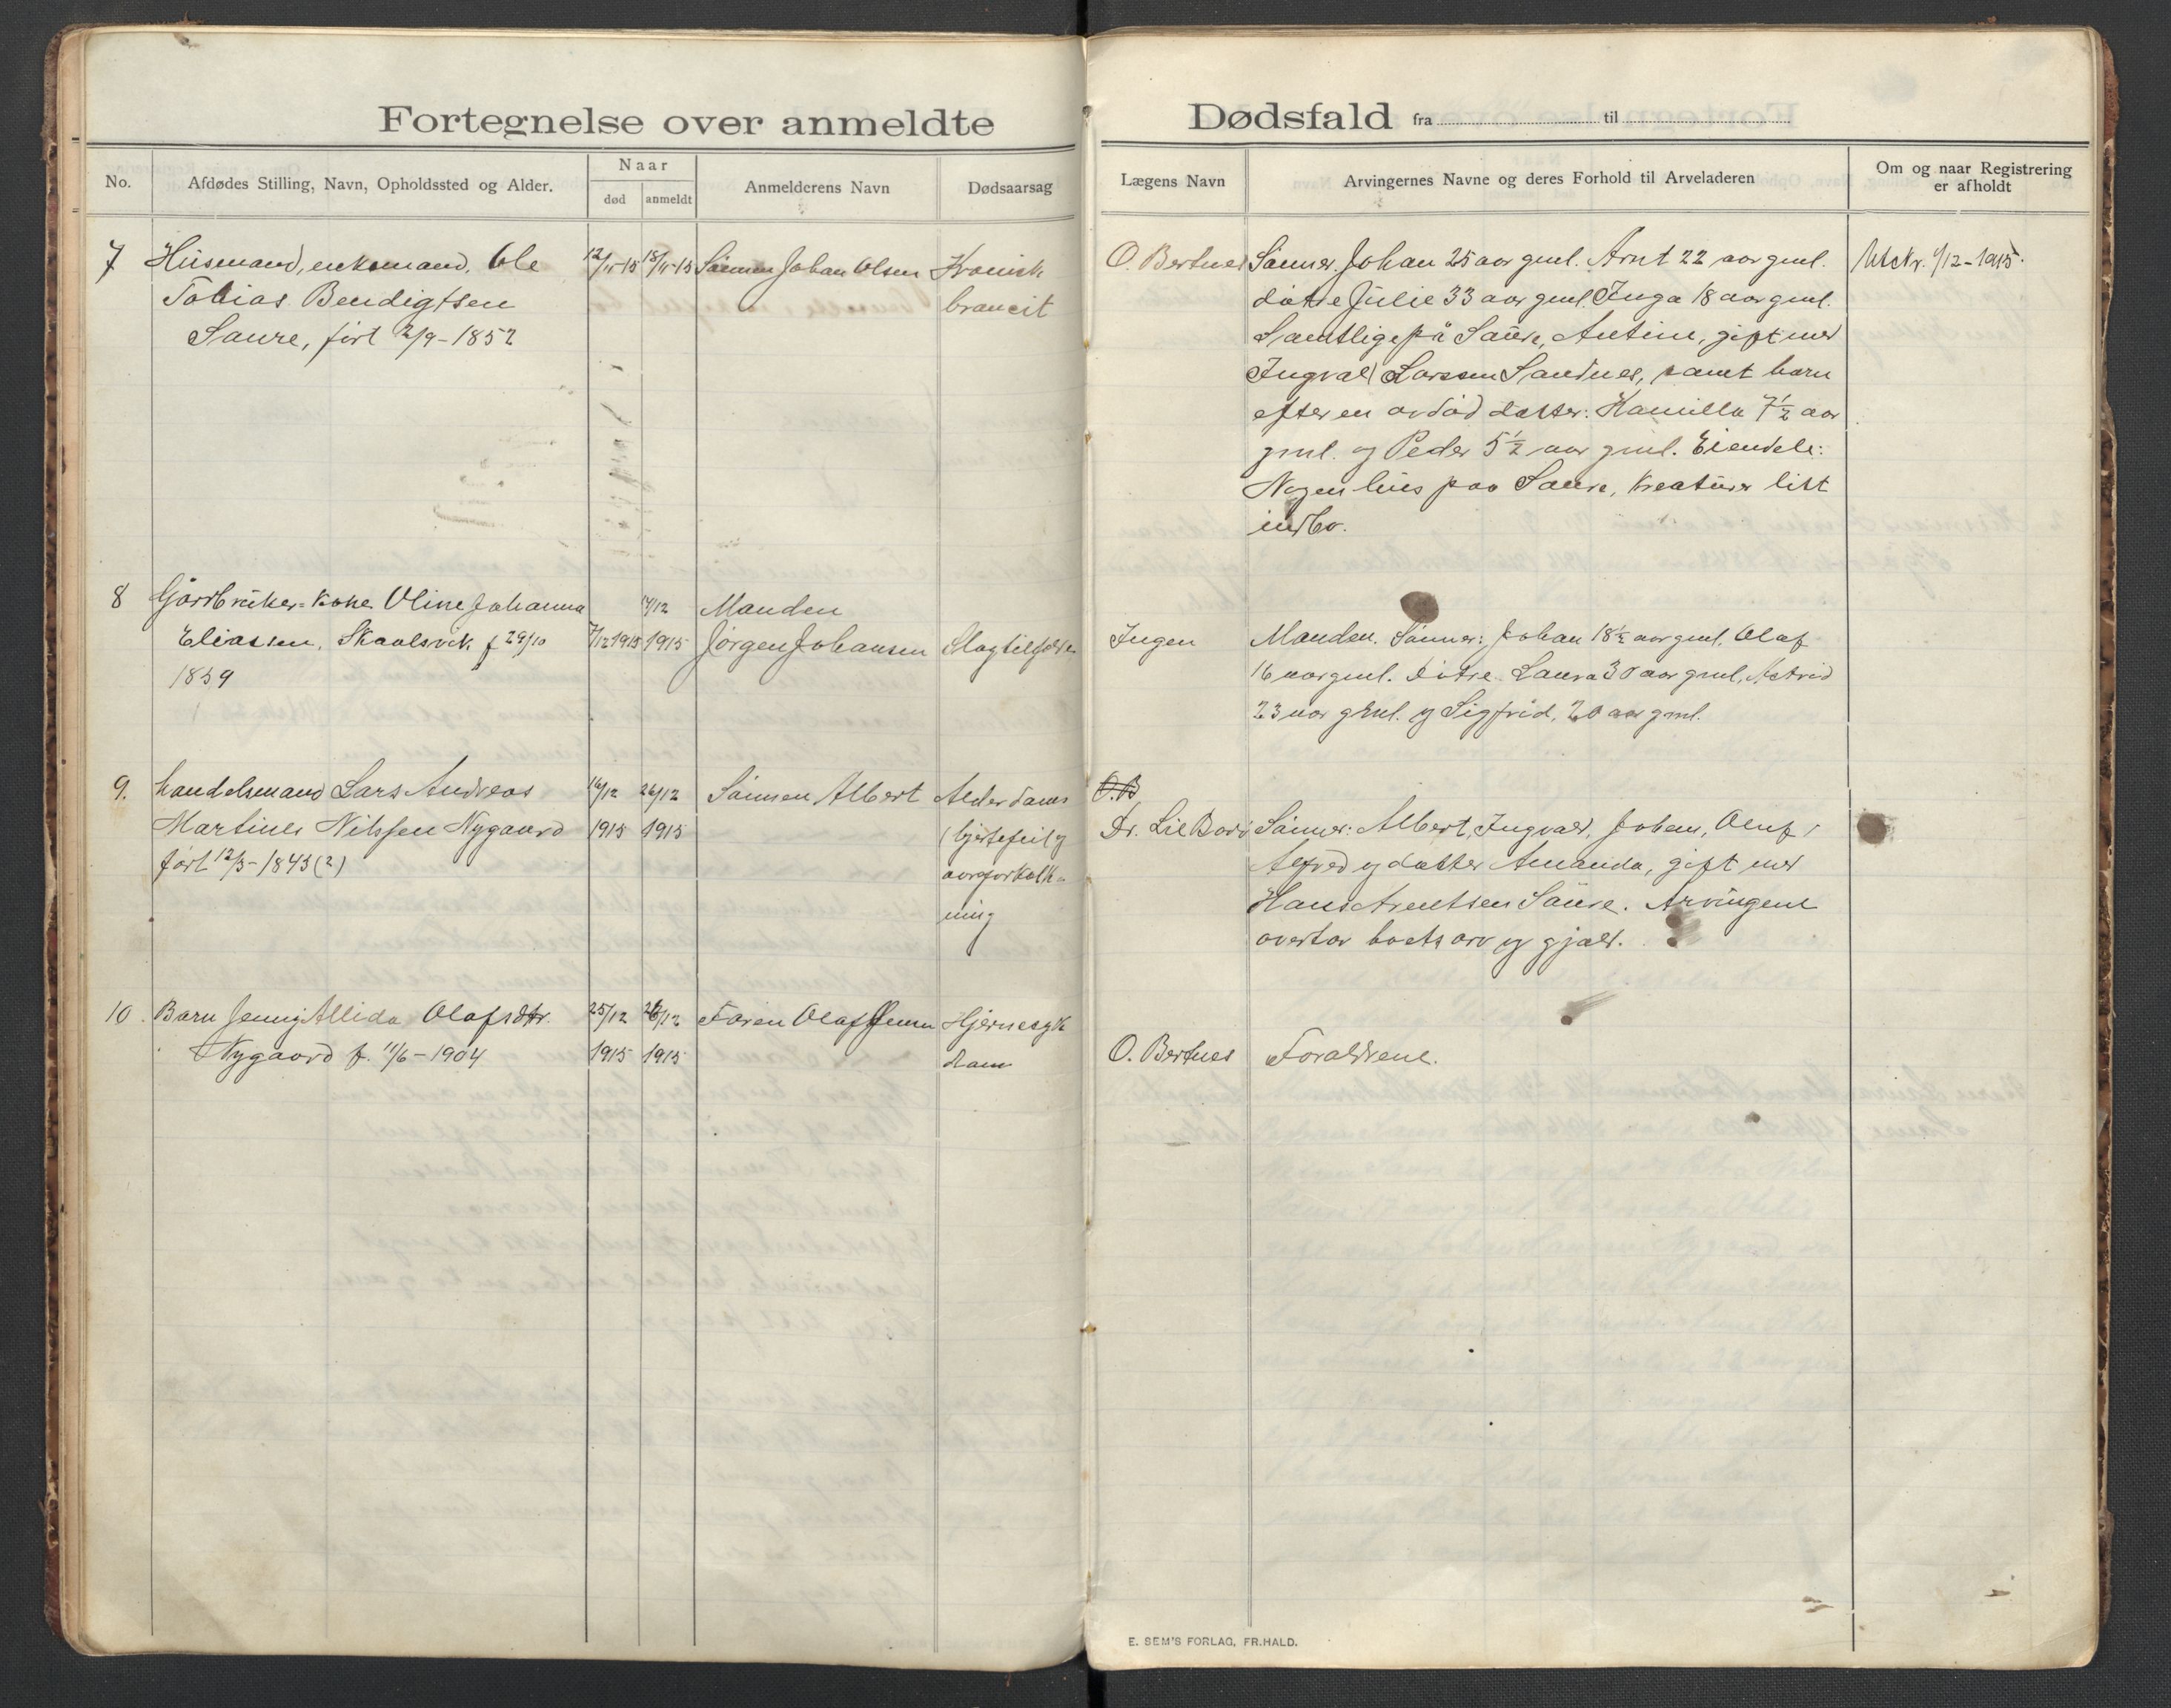 Fortegnelse over anmeldte Dødsfald fra til
No.
Afdødes Stilling, Navn, Opholdssted og Alder.
Naar
død
anmeldt
Anmelderens Navn
Dødsaarsag
Lægens Navn
Arvingernes Navne og deres Forhold til Arveladeren
Om og naar Registrering
er afholdt
7
Husmand, enkemand, Ole
Tobias Bendigtsen
Saure, født 2/9-1852
12/11-15
15/11-15
Sønnen Johan Olsen
Kronisk
brancit
O. Bertnes
Sønner. Johan 25 aar gml. Arnt 22 aar gml.
døtre Julie 33 aar gml. Inga 18 aar gml.
Samtlige på Saure, Antine, gift med
Ingvald Larssen Sandnes, samt barn
efter en avdød datter: Hamilla 7½ aar
gml. og Peder 5½ aar gml. Eiendele:
Nogen hus paa Saure, kreaturer litt
indbo.
1/12-1915.
8
Gårdbruker-kone Oline Johanna
Eliassen, Skaalsvik f 29/10
1859
7/12 1915
14/12
1915
Manden
Jørgen Johansen
Slagtilfælde
Ingen
Manden. Sønner: Johan 18½ aar gml. Olaf
16 aar gml. Døtre Laura 30 aar gml, Astrid
23 aar gml. og Sigfrid, 20 aar gml.
9.
handelsmand Lars Andreas
Martines Nilssen Nygaard
født 12/3-1843(2)
16/12
1915
26/12
1915
Sønnen Albert
Alderdoms
(hjertefeil og
aareforkalk-
ning
O.B
Dr. Lie
Sønner: Albert, Ingvald, Johan, Oluf,
Alfred og datter Amanda, gift med
Hans Arentsen Saure. Arvingene
overtar boets arv og gjæld.
10.
Barn Jenny Allida Olafsdtr.
Nygaard f. 11/6-1904
25/12
1915
26/12
1915
Faren Olaf Jensen
Hjernesyk
dom
O. Bertnes
Forældrene.
E. SEM'S FORLAG, FR.HALD.